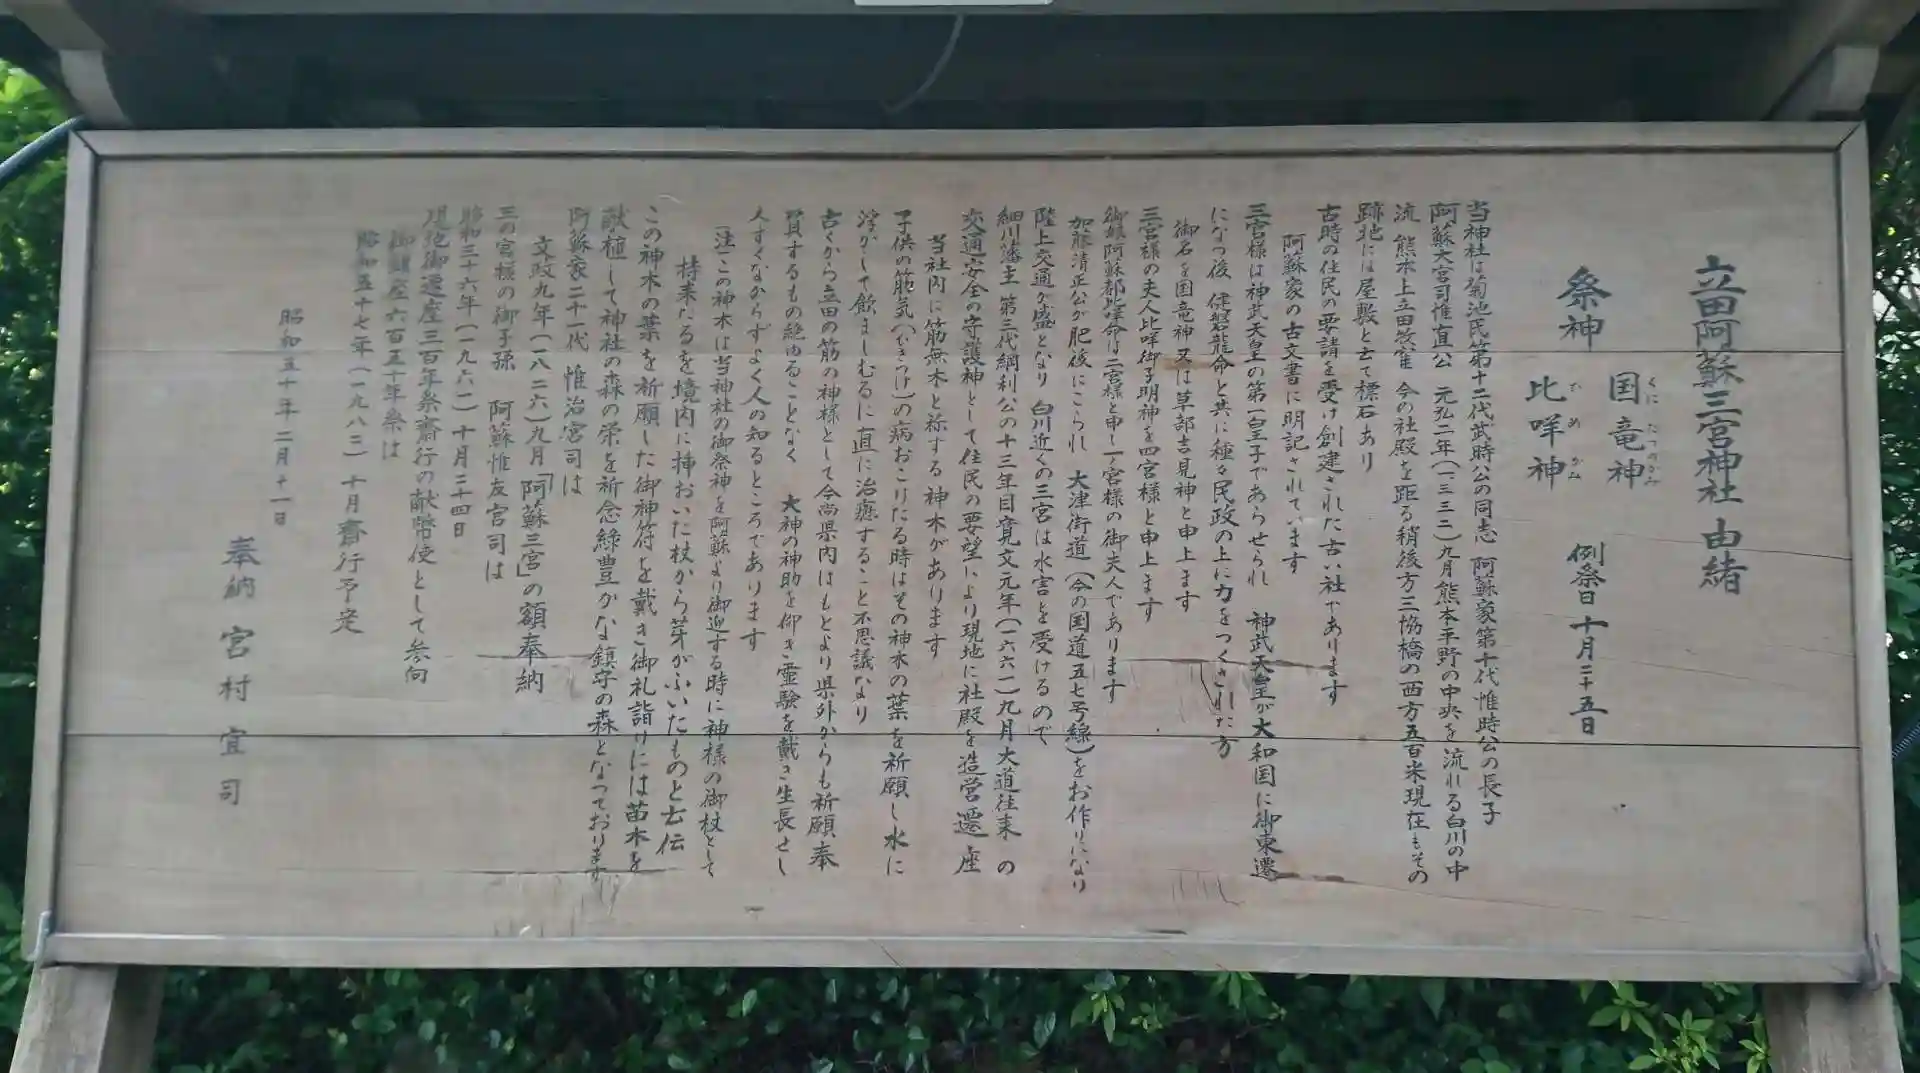 立田阿蘇三宮神社 由緒
祭神 国竜神 例祭日 十月二十五日
くにたつのかみ
比咩神
ひめがみ
当神社は菊池氏第十二代武時公の同志 阿蘇家第十代惟時公の長子
阿蘇大宮司惟直公 元弘二年(一三三二)九月熊本平野の中央を流れる白川の中
流 熊本上立田 今の社殿を距る稍後方三協橋の西方五百米現在もその
跡地には屋敷と云て標石あり
古時の住民の要請を受け創建された古い社であります
阿蘇家の古文書に明記されています
三宮様は神武天皇の第一皇子であらせられ 神武天皇が大和国に御東遷
になつ後 健磐龍命と共に種々民政の上に力をつくされた方
御名を国竜神又は草部吉見神と申上ます
三宮様の夫人比咩御子明神を四宮様と申上ます
御娘阿蘇都比咩命は二宮様と申し一宮様の御夫人であります
加藤清正公が肥後にこられ 大津街道(今の国道五七号線)をお作りになり
陸上交通が盛となり 白川近くの三宮は水害を受けるので
細川藩主 第三代綱利公の十三年目寛文元年(一六六一)九月大道往来の
交通安全の守護神として住民の要望により現地に社殿を造営遷座
当社内に筋無木と称する神木があります
子供の筋気(ひきつけ)の病おこりたる時はその神木の葉を祈願し水に
浮かして飲ましむるに直に治癒すること不思議なり
古くから立田の筋の神様として今尚県内はもとより県外からも祈願奉
賽するもの絶ゆることなく 大神の神助を仰ぎ霊験を戴き生長せし
人すくなからずよく人の知るところであります
(注)この神木は当神社の御祭神を阿蘇より御迎する時に神様の御杖として
持来たるを境内に挿おいた杖から芽がふいたものと云伝
この神木の葉を祈願した御神符を戴き御礼詣りには苗木を
献植して神社の森の栄を祈念緑豊かな鎮守の森となつております
阿蘇家二十一代 惟治宮司は
文政九年(一八二六)九月「阿蘇三宮」の額奉納
三の宮様の御子孫 阿蘇惟友宮司は
昭和三十六年(一九六一)十月二十四日
現地御遷座三百年祭齋行の献幣使として参向
御鎮座六百五十年祭は
昭和五十七年(一九八二)十月齋行予定
昭和五十年二月十一日
奉納 宮村宜司